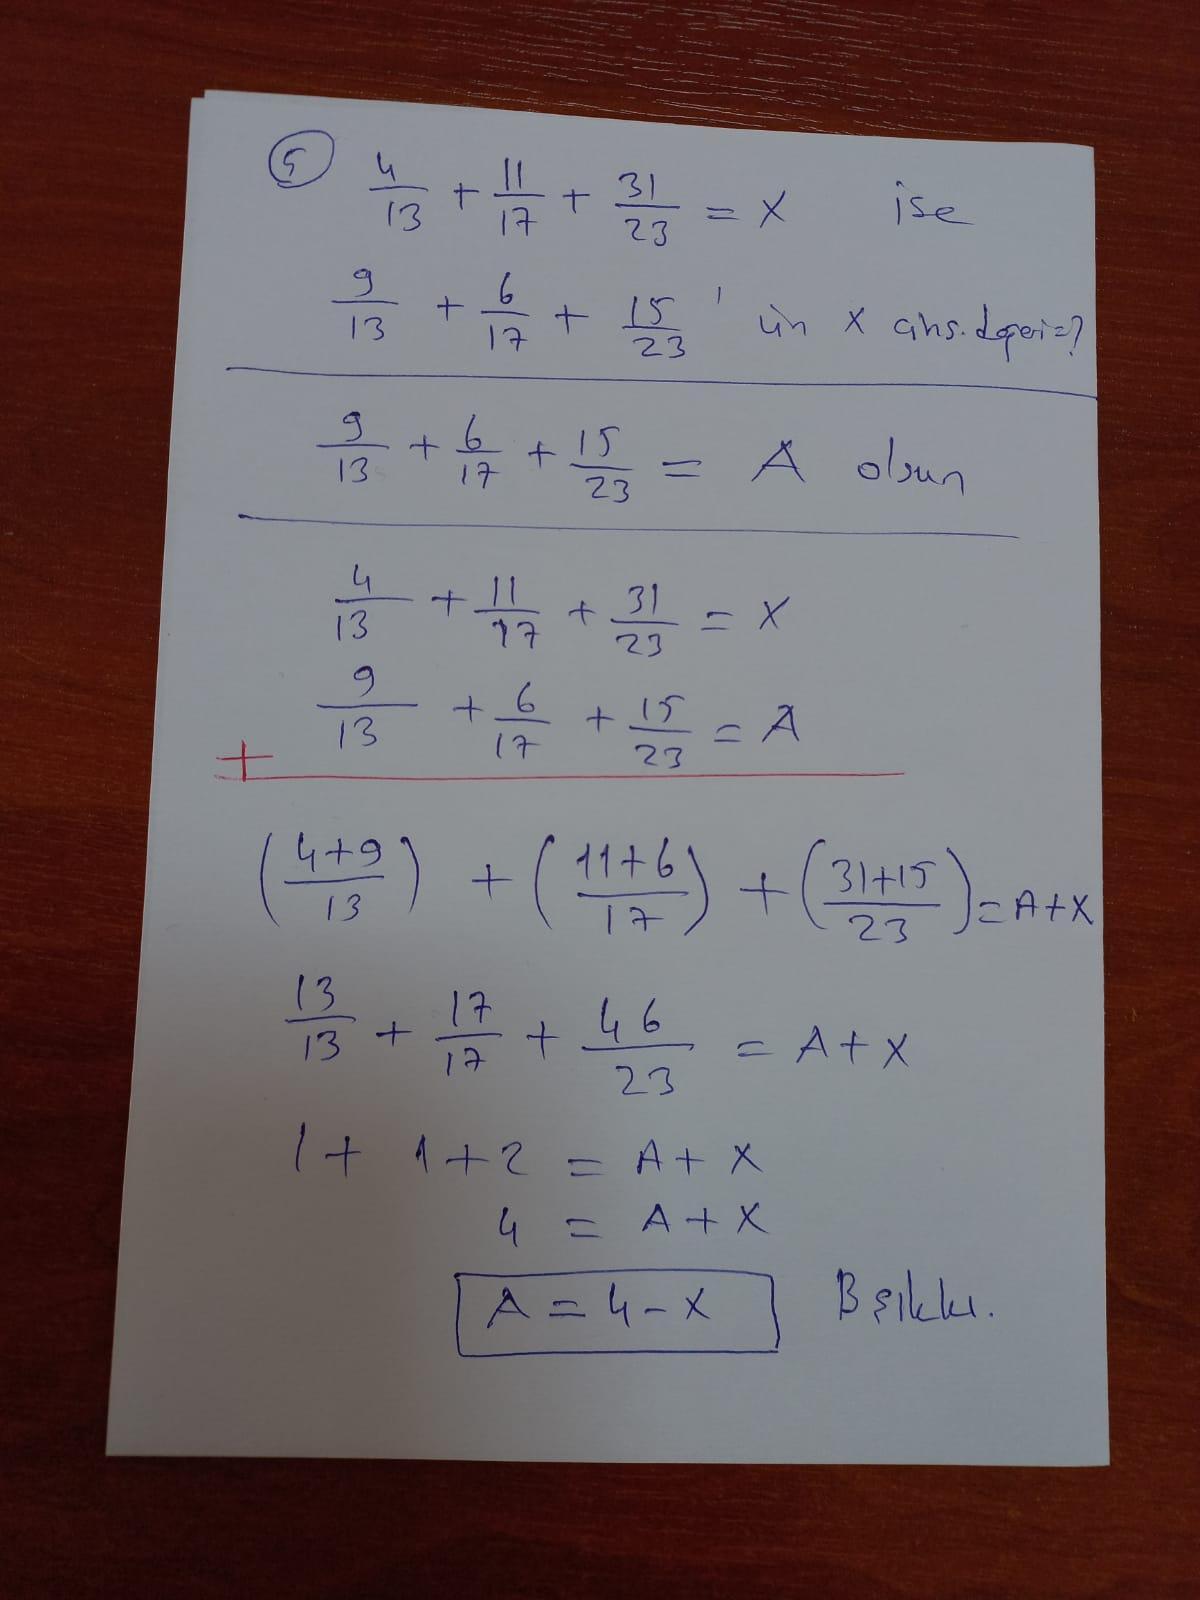 5 4/13 + 11/17 + 31/23 = x ise
9/13 + 6/17 + 15/23 'ün x cins. değeri=?
9/13 + 6/17 + 15/23 = A olsun
4/13 + 11/17 + 31/23 = x
9/13 + 6/17 + 15/23 = A
+
(4+9/13) + (11+6/17) + (31+15/23) = A+x
13/13 + 17/17 + 46/23 = A+x
1+ 1+2 = A+x
4 = A+x
A = 4-x B şıkkı.